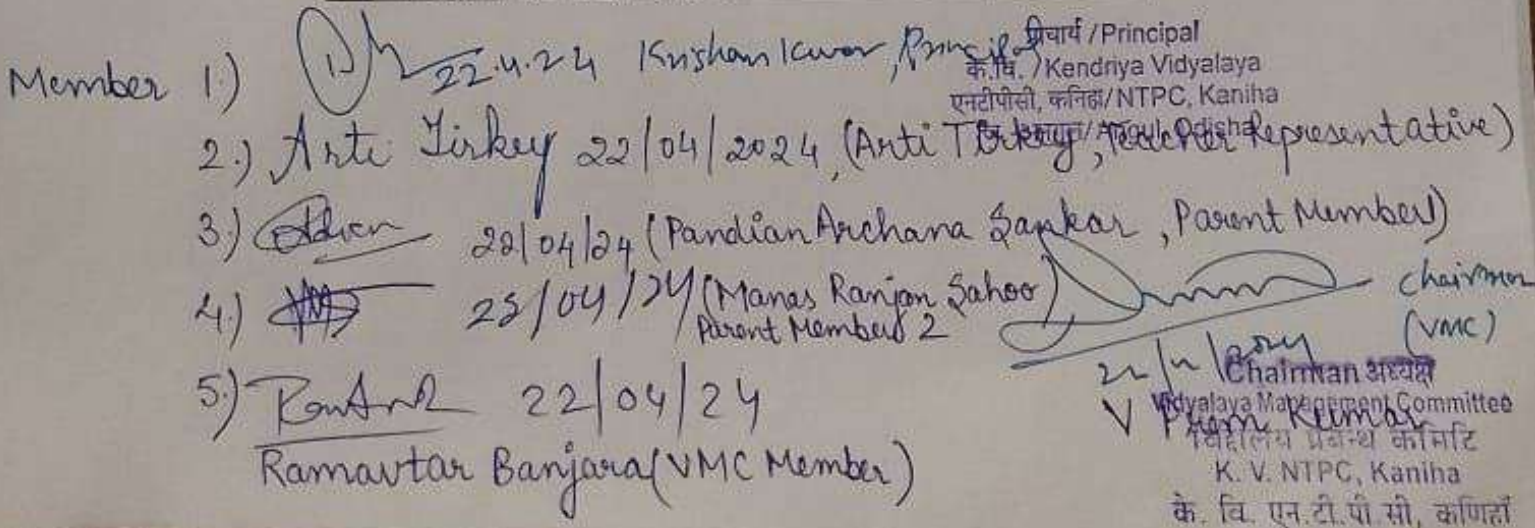 Member 1.) 22.4.24 Krishan Kumar, Principal
प्रिंचार्य / Principal
के.वि. / Kendriya Vidyalaya
एनटीपीसी, कनिहा/NTPC, Kaniha
2.) Arti Tirkey 22/04/2024, (Arti Tirkey, Teacher Representative)
3.) 22/04/24 (Pandian Archana Sankar, Parent Member1)
4.) 22/04/24 (Manas Ranjan Sahoo)
Parent Member 2
chairman
(VMC)
5.) 22/04/24
Ramavtar Banjara (VMC Member)
Chairman अध्यक्ष
Vidyalaya Management Committee
V Prem Kumar
विद्यालय प्रबन्ध कमिटि
K. V. NTPC, Kaniha
के. वि. एन.टी.पी.सी. कणिहाँ